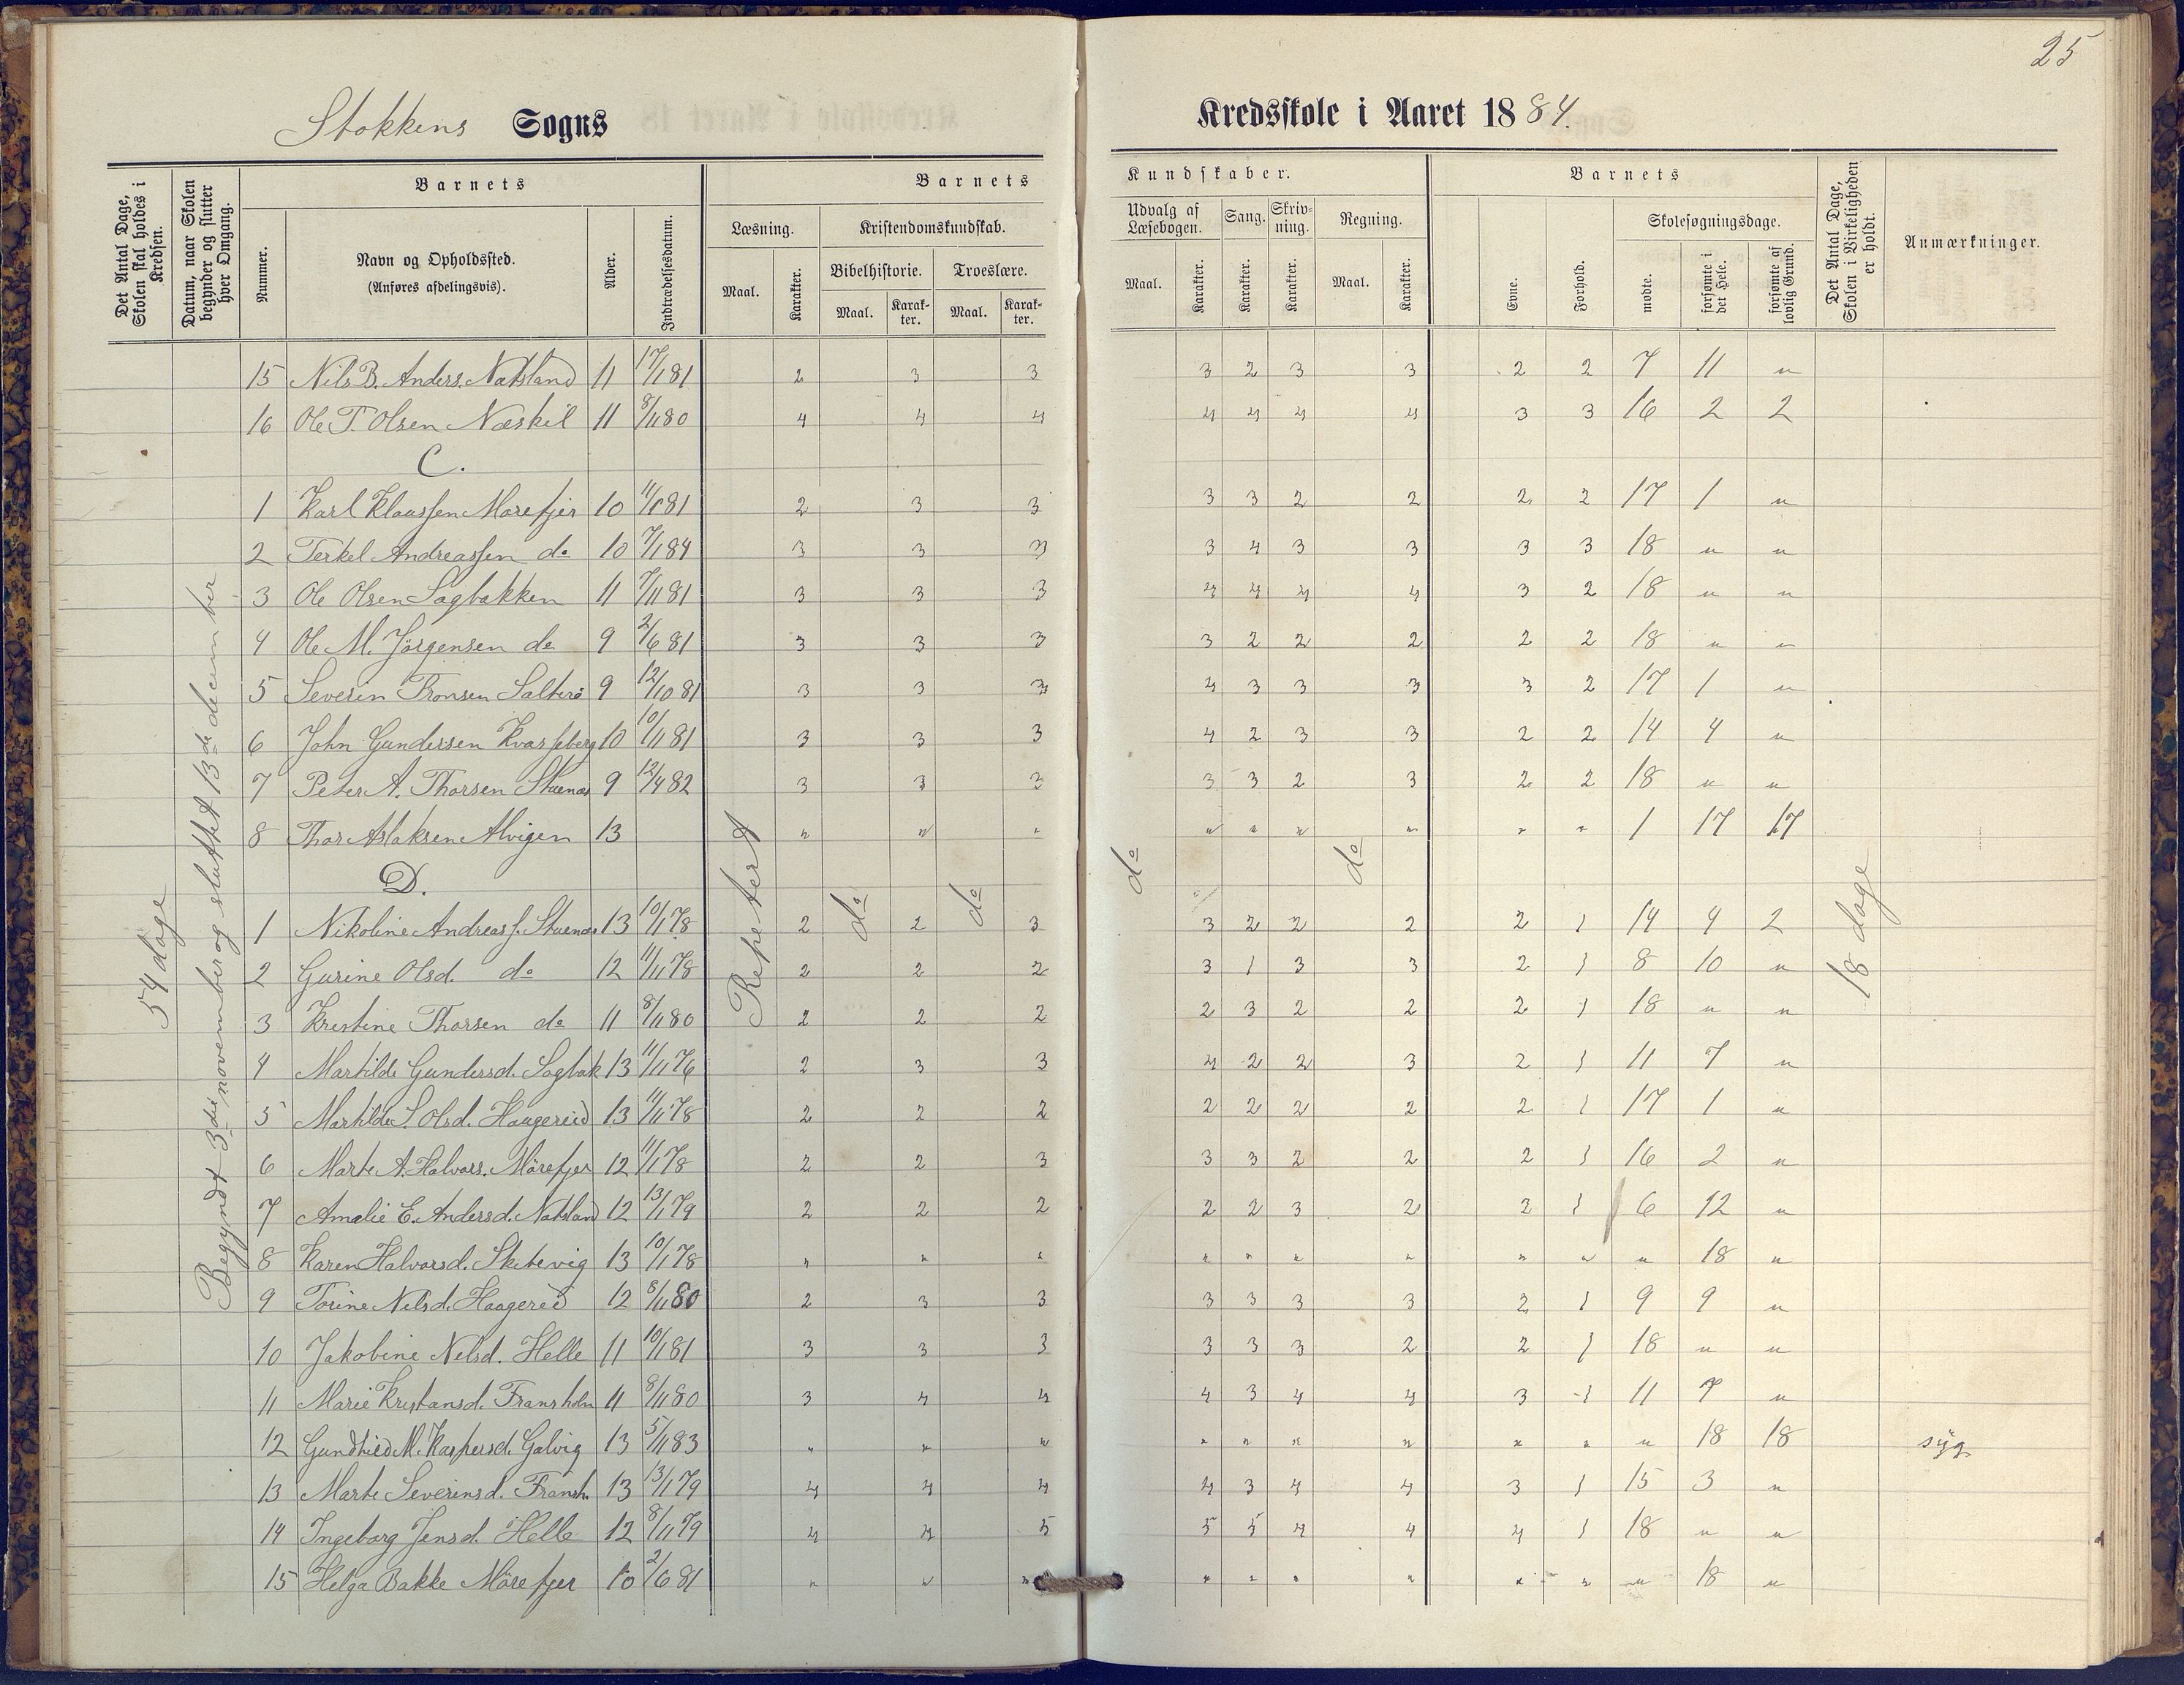 25
Stokkens Sogns Kredsskole i Aaret 1884.
Det Antal Dage, Skolen skal holdes i Kredsen.
Datum, naar Skolen begynder og slutter hver Omgang.
Barnets
Nummer.
Navn og Opholdssted.
(Anføres afdelingsvis).
Alder.
Indtrædelsesdatum.
Barnets Kundskaber.
Læsning.
Maal.
Karakter.
Kristendomskundskab.
Bibelhistorie.
Maal.
Karakter.
Troeslære.
Maal.
Karakter.
Udvalg af Læsebogen.
Maal.
Karakter.
Sang.
Karakter.
Skrivning.
Karakter.
Regning.
Maal.
Karakter.
Barnets
Evne.
Forhold.
Skolesøgningsdage.
mødte.
forsømte i det Hele.
forsømte af lovlig Grund.
Det Antal Dage, Skolen i Virkeligheden er holdt.
Anmærkninger.
54 dage
Begyndt 3die november og sluttet 13de december
Repetert do do do do
18 dage
15 Nils B. Anders. Natsland 11 17/1 81 2 3 3 3 2 3 3 2 2 7 11 "
16 Ole T. Olsen Næskil 11 8/11 80 4 4 4 4 4 4 4 3 3 16 2 2
C.
1 Karl Klaussen Mørefjer 10 11/8 81 2 3 3 3 3 2 2 2 2 17 1 "
2 Terkel Andreassen do 10 7/1 84 3 3 3 3 4 3 3 3 3 18 " "
3 Ole Olsen Sagbakken 11 7/11 81 3 3 3 4 4 4 4 3 2 18 " "
4 Ole M. Jörgensen do 9 2/6 81 3 3 3 3 2 2 2 2 2 18 " "
5 Severin Tronsen Salterö 9 12/10 81 3 3 3 4 3 3 3 3 2 17 1 "
6 John Gundersen Kvasseberg 10 10/11 81 3 3 3 4 2 3 3 2 2 14 4 "
7 Peter A. Thorsen Stuenæs 9 12/4 82 3 3 3 3 3 2 3 2 2 18 " "
8 Thor Aslaksen Alvigen 13 " " " " " " " " " 1 17 17
D.
1 Nikoline Andreass. Stuenæs 13 10/1 78 2 2 3 3 2 2 2 2 1 14 4 2
2 Gurine Olsd. do 12 11/11 78 2 2 2 3 1 3 3 2 1 8 10 "
3 Kristine Thorsen do 11 8/11 80 2 2 2 2 3 2 2 2 1 18 " "
4 Marthilde Gundersd. Sagbak 13 11/11 76 2 3 3 4 2 2 3 2 1 11 7 "
5 Marthilde S. Olsd. Haugereid 13 11/11 78 2 2 2 2 2 2 2 2 1 17 1 "
6 Marte A. Halvors. Mörefjer 12 11/1 78 2 2 3 3 3 2 2 2 1 16 2 "
7 Amalie E. Andersd. Natsland 12 13/1 79 2 2 2 2 2 3 2 2 1 6 12 "
8 Karen Halvorsd. Sketevig 13 10/1 78 " " " " " " " " " " 18 "
9 Torine Nilsd. Haagereid 12 8/11 80 2 3 3 3 3 3 3 2 1 9 9 "
10 Jakobine Nelsd. Helle 11 10/1 81 3 3 3 3 3 3 2 2 1 18 " "
11 Marie Kristansd. Fransholm 11 8/11 80 3 4 4 4 3 4 4 3 1 11 7 "
12 Gundhild M. Kaspersd. Galvig 13 5/11 83 " " " " " " " " " " 18 18 syg
13 Marte Severinsd. Fransh. 13 13/1 79 4 4 4 4 3 4 4 3 1 15 3 "
14 Ingeborg Jensd. Helle 12 8/11 79 4 4 5 5 5 4 4 4 1 18 " "
15 Helga Bakke Mörefjer 10 2/6 81 " " " " " " " " " " 18 "